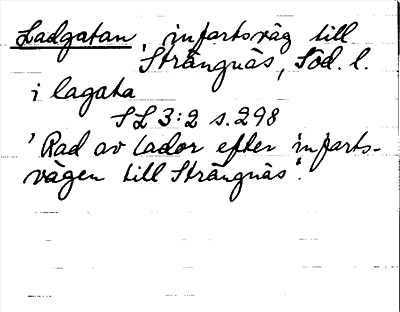 Ladgatan, infartsväg till
Strängnäs, Söd. l.
i lagata
SL 3:2 s. 298
'Rad av lador efter infarts-
vägen till Strängnäs'.